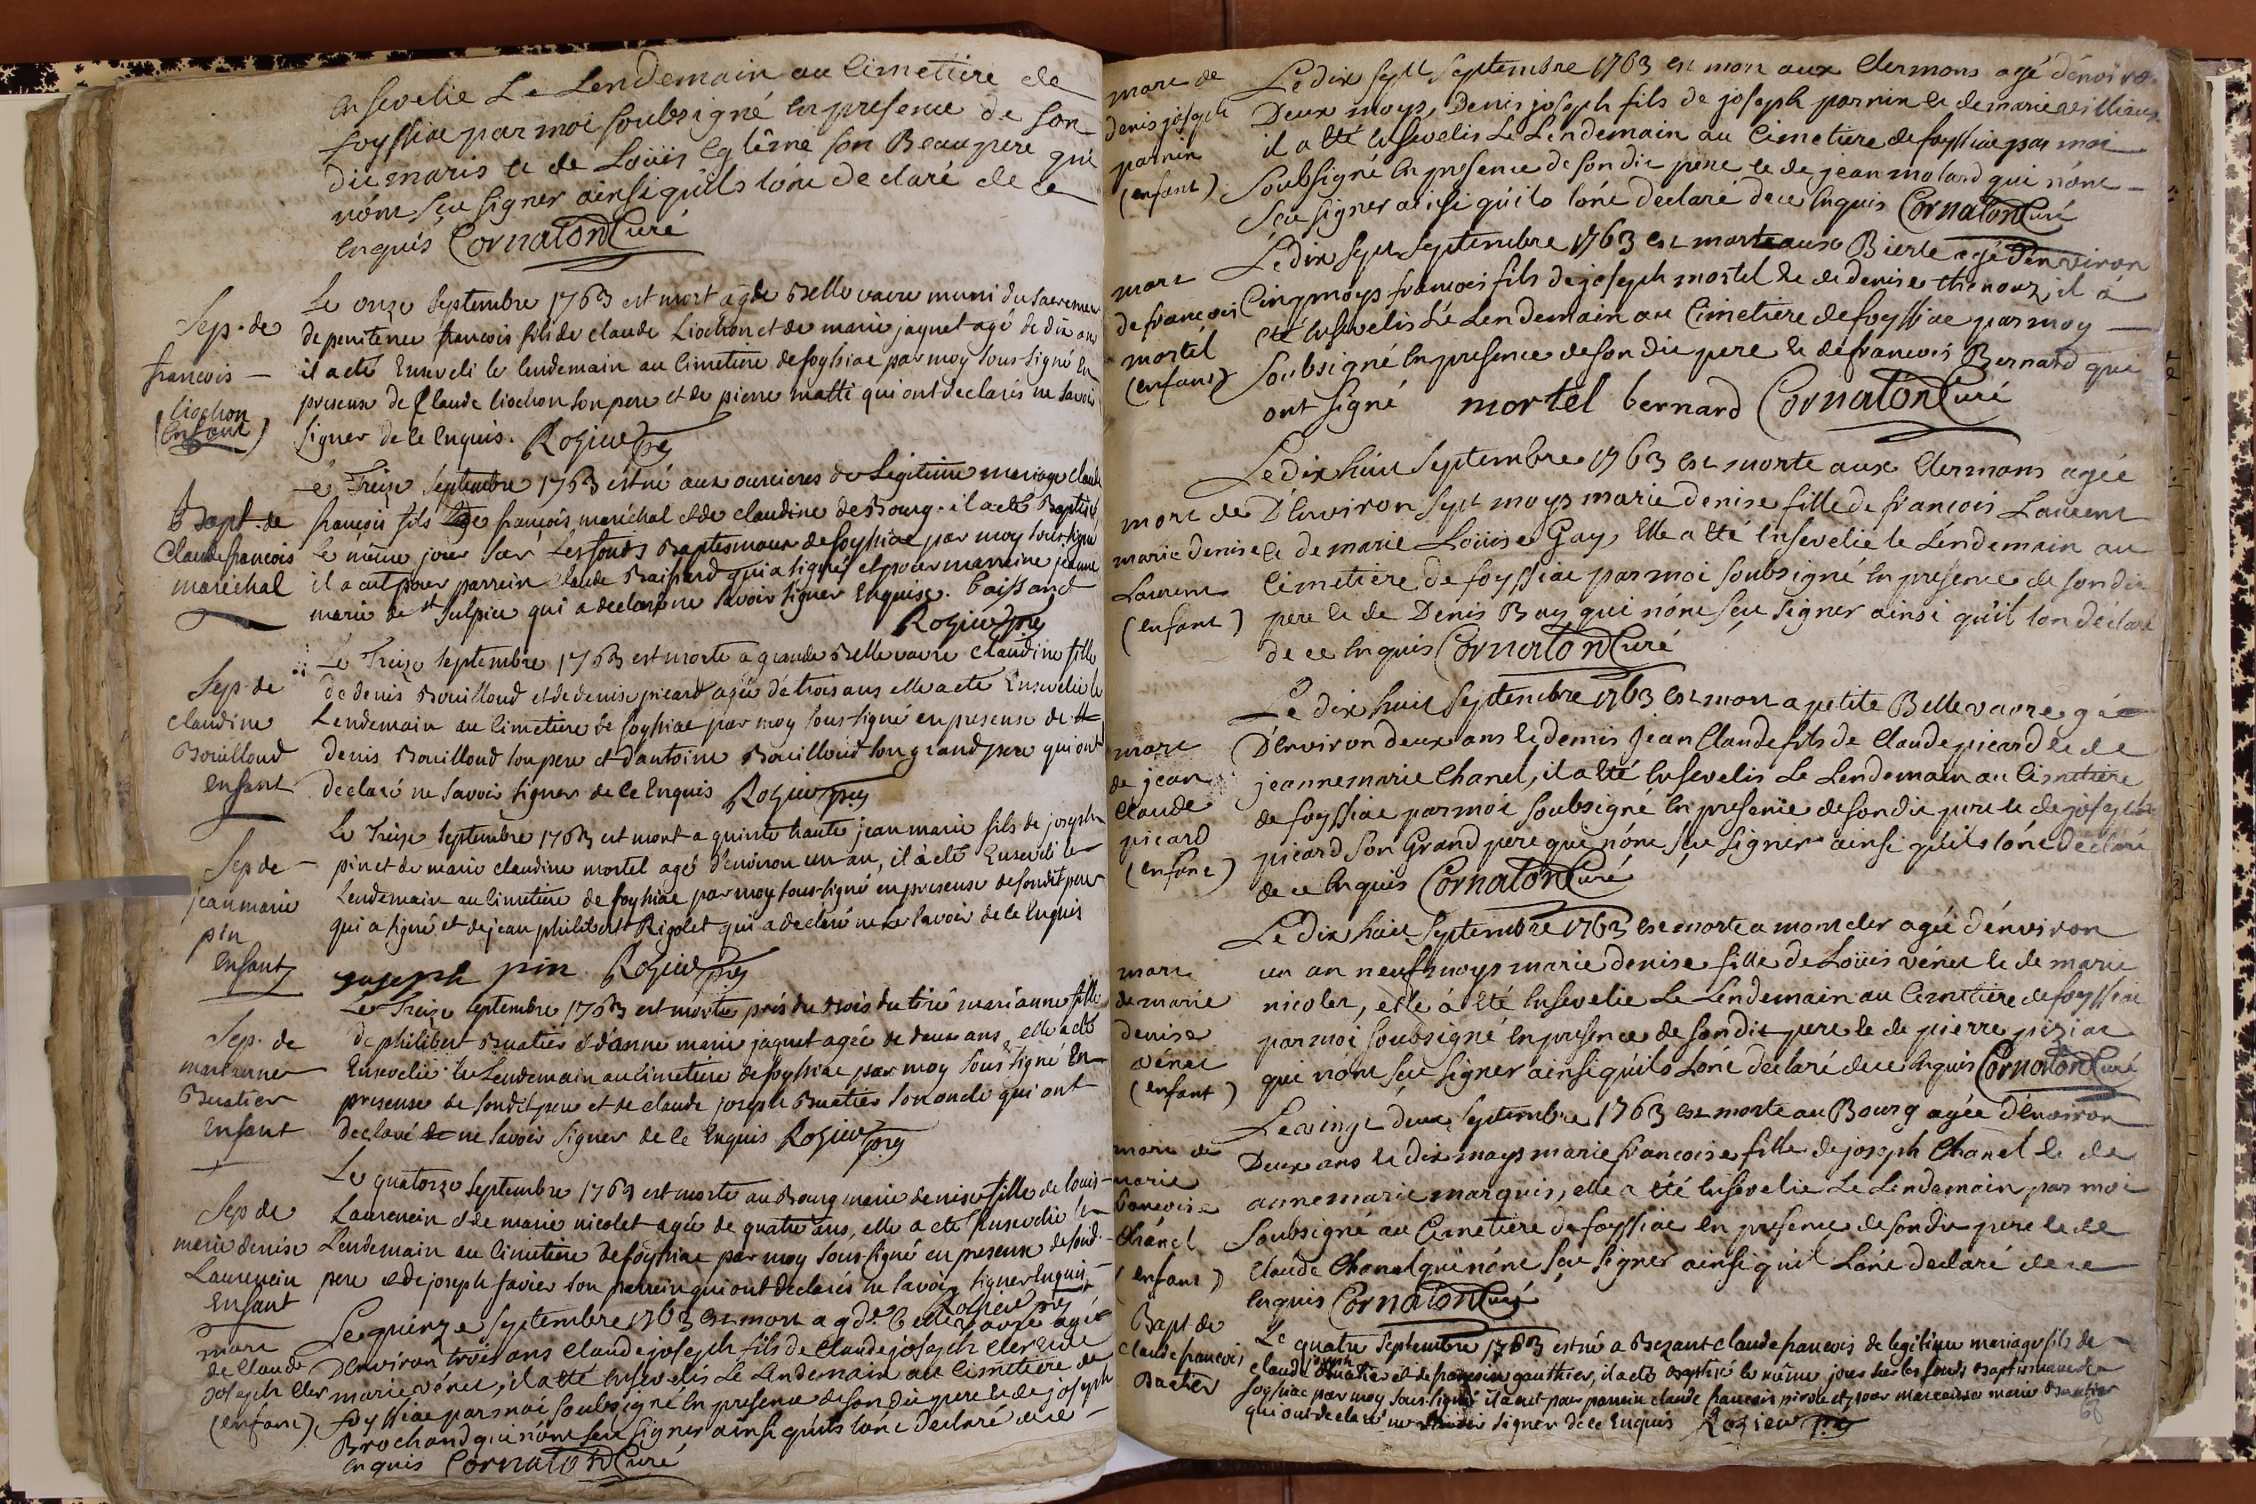 Ensevelie Le Lendemain au Cimetiere de
foyssiac par moi soubsigné En presence de son
dit maris et de Loüis Eglême son Beaupere qui
nônt sçu signer ainsi qu'ils lônt declaré de ce
Enquis Cornaton Curé
Sep. de
francois
liochon
(Enfant)
Le onze Septembre 1763 est mort a gde Belle vavre muni du Sacremen
de penitence francois fils de claude Liochon et de marie jaquet agé de dix ans
il a eté Enseveli le lendemain au Cimetiere de foyssiac par moy sous-signé En
presense de Claude liochon son pere et de pierre matti qui ont declarés ne savoir
signer de ce Enquis. Rozier ptre
Bapt. de
Claude francois
maréchal
Le Treize Septembre 1763 est né aux ourcieres de Légitime mariage claude
françois fils de françois maréchal et de claudine de Bourg. il a eté Baptisé
le même jour sur Les fonds Baptismaux de foyssiac par moy sous-signé
il a eut pour parrein claude Baissard qui a signé et pour marreine jeanne
marie de st Sulpice qui a declaré ne savoir signer Enquise. baissard
Rozier ptre
Sep. de
claudine
Bouilloud
enfant
Le Treize Septembre 1763 est morte a grande Belle vavre claudine fille
de denis Bouilloud et de denise picard agée de trois ans elle a eté Ensevelie le
Lendemain au Cimetiere de foyssiac par moy sous-signé en presense de
denis Bouilloud son pere et d'antoine Bouilloud son grand pere qui ont
declaré ne savoir signer de ce Enquis Rozier ptre
Sep de
jean marie
pin
enfant
Le Treize Septembre 1763 est mort a quinte haute jean marie fils de joseph
pin et de marie claudine mortel agé d'environ un an, il à eté Enseveli le
Lendemain au Cimetiere de foyssiac par moy sous-signé en presense de sondit pere
qui a signé et de jean philibert Rigolet qui a declaré ne le savoir de ce Enquis
joseph pin Rozier ptre
Sep. de
marianne
Buatier
Enfant
Le Treize Septembre 1763 est morte prés du Bois du tiré marianne fille
de philibert Buatier et d'anne marie jaquet agée de deux ans, elle a eté
Ensevelie le Lendemain au Cimetiere de foyssiac par moy Sous-signé En
presense de sondit pere et de claude joseph Buatier son oncle qui ont
declaré de ne savoir signer de ce Enquis Rozier ptre
Sep de
marie denise
Laurencin
Enfant
Le quatorze Septembre 1763 est morte au Bourg marie denise fille de louis
Laurencin et de marie nicolet agée de quatre ans, elle a eté Ensevelie le
Lendemain au Cimetiere de foyssiac par moy sous-signé en presense de sond.
pere et de joseph favier son parrein qui ont declarés ne savoir signer Enquis
Rozier ptre
mort
de Claude
Joseph Cler
(enfant)
Le quinze Septembre 1763 est mort a gde Bellevavre agé
D'Environ trois ans Claude joseph fils de Claude joseph Cler et de
marie vénet, il a été Ensevelis Le Lendemain au Cimetiere de
foyssiac par moi soubsigné En presence de son dit pere et de joseph
Brochand qui nônt sçu signer ainsi qu'ils lônt declaré de ce
Enquis Cornaton Curé
mort de
denis joseph
parnin
(enfant)
Le dix sept Septembre 1763 est mort aux Clermons agé d'énviron
Deux moys, Denis joseph fils de joseph parnin et de marie
il a été Ensevelis Le Lendemain au Cimetiere de foyssiac par moi
soubsigné En presence de son dit pere et de jean molard qui nônt
sçu signer ainsi qu'ils lônt declaré de ce Enquis Cornaton Curé
mort
de francois
mortel
(enfant)
Le dix sept Septembre 1763 est mort aux Bierle agé d'énviron
Cinq moys francois fils de joseph mortel et de denise thenoux, il a
eté Ensevelis Le Lendemain au Cimetiere de foyssiac par moy
soubsigné En presence de son dit pere et de francois Bernard qui
ont signé mortel bernard Cornaton Curé
mort de
marie denise
Laurent
(enfant)
Le dix huit Septembre 1763 est morte aux Clermons agée
D'Environ sept moys marie denise fille de francois Laurent
et de marie Loüise Gay, Elle a été Ensevelie le Lendemain au
Cimetiere de foyssiac par moi soubsigné En presence de son dit
pere et de Denis Buy qui nônt sçu signer ainsi qu'il lon déclaré
de ce Enquis Cornaton Curé
mort
de jean
Claude
picard
(enfant)
Le dix huit Septembre 1763 est mort a petite Bellevavre agé
D'Environ deux ans et demis Jean Claude fils de Claude picard et de
jeanne marie Chanel, il a été Ensevelis Le Lendemain au Cimetiere
de foyssiac par moi soubsigné En presence de son dit pere et de joseph
picard son Grand pere qui nônt sçu signer ainsi qu'ils lônt declaré
de ce Enquis Cornaton Curé
mort
de marie
denise
vénet
(enfant)
Le dix huit Septembre 1763 est morte a montcler agée d'énviron
un an neuf moys marie denise fille de Loüis vénet et de marie
nicolet, elle à été Ensevelie Le Lendemain au Cimetiere de foyssiac
par moi soubsigné En presence de son dit pere et de pierre piziat
qui nônt sçu signer ainsi qu'ils Lônt declaré de ce Enquis Cornaton Curé
mort de
marie
francoise
Chanel
(enfant)
Le vingt deux Septembre 1763 est morte au Bourg agée D'Environ
Deux ans et dix moys marie francoise fille de joseph Chanel et de
anne marie marquis, elle a été Ensevelie Le Lendemain par moi
soubsigné au Cimetiere de foyssiac En presence de son dit pere et de
Claude Chanel qui nônt sçu signer ainsi quil Lônt declaré de ce
Enquis Cornaton Curé
Bapt de
claude francois
Buatier
Le quatre Septembre 1763 est né a Bezant claude francois de legitime mariage fils de
claude joseph Buatier et de francoise gauthier, il a eté Baptisé le même jour sur les fonds Baptismaux de
foyssiac par moy sous-signé il a eut pour parrein claude francois et pour marreine marie Buatier
qui ont declaré ne savoir signer de ce Enquis Rozier ptre